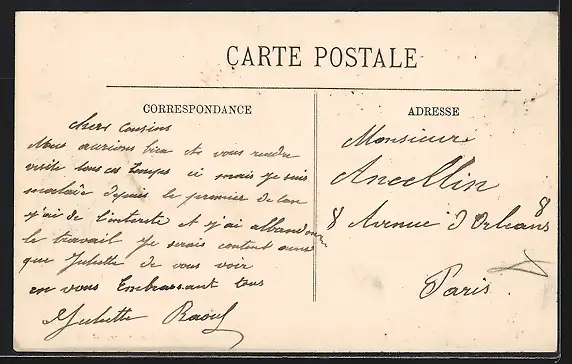 CARTE POSTALE
CORRESPONDANCE
ADRESSE
chers Cousins
Nous aurions bien été vous rendre
visite tous ces temps ci mais je suis
malade depuis le premier de l'an
j'ai de l'enterite et j'ai abandonner
le travail je serais content ainsi
que Juliette de vous voir
en vous Embrassant tous
Juliette Raoul
Monsieur
Ancellin
8 Avenue d'Orléans 8
Paris